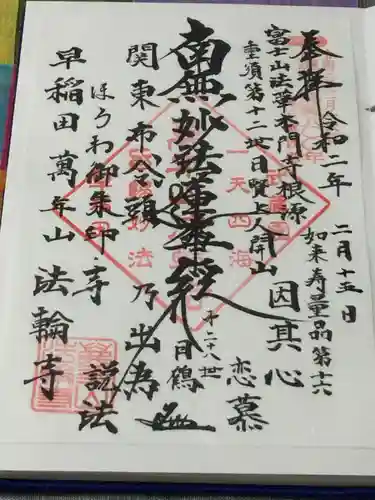 奉拝 令和二年 二月十五日
富士山法華本門寺根源
如来寿量品第十六
重須第十二世日賢上人開山
因其心
恋慕
南無妙法蓮華経
一天四海
妙法
十二八世
日鶴
関東布令頭
乃出為
説法
ほうわ御朱印寺
早稲田萬年山 法輪寺